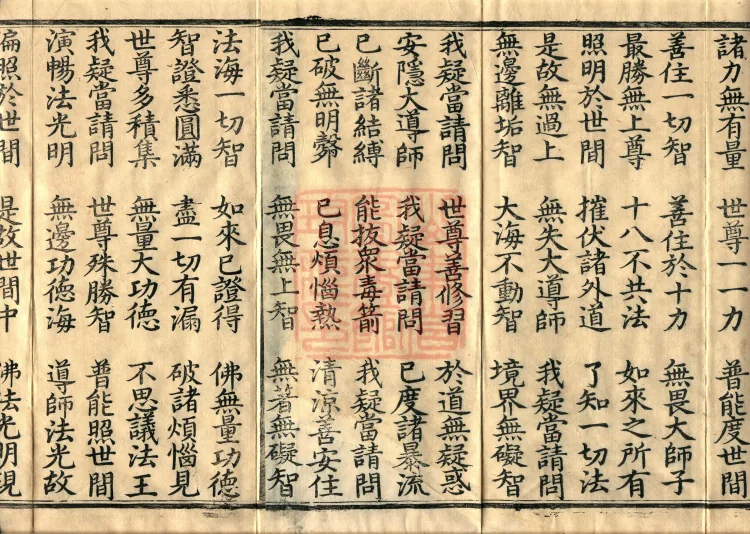 諸力無有量 世尊一一力 普能度世間
善住一切智 善住於十力 無畏大師子
最勝無上尊 十八不共法 如來之所有
照明於世間 摧伏諸外道 了知一切法
是故無過上 無失大導師 我疑當請問
無邊離垢智 大海不動智 境界無礙智
我疑當請問 世尊善修習 於道無疑惑
安隱大導師 我疑當請問 已度諸暴流
已斷諸結縛 能拔衆毒箭 我疑當請問
已破無明 已息煩惱熱 清涼善安住
我疑當請問 無畏無上智 無著無礙智
法海一切智 如來已證得 佛無量功德
智證悉圓滿 盡一切有漏 破諸煩惱見
世尊多積集 無量大功德 不思議法王
我疑當請問 世尊殊勝智 普能照世間
演暢法光明 無邊功德海 導師法光故
徧照於世間 是故世間中 佛法光明現